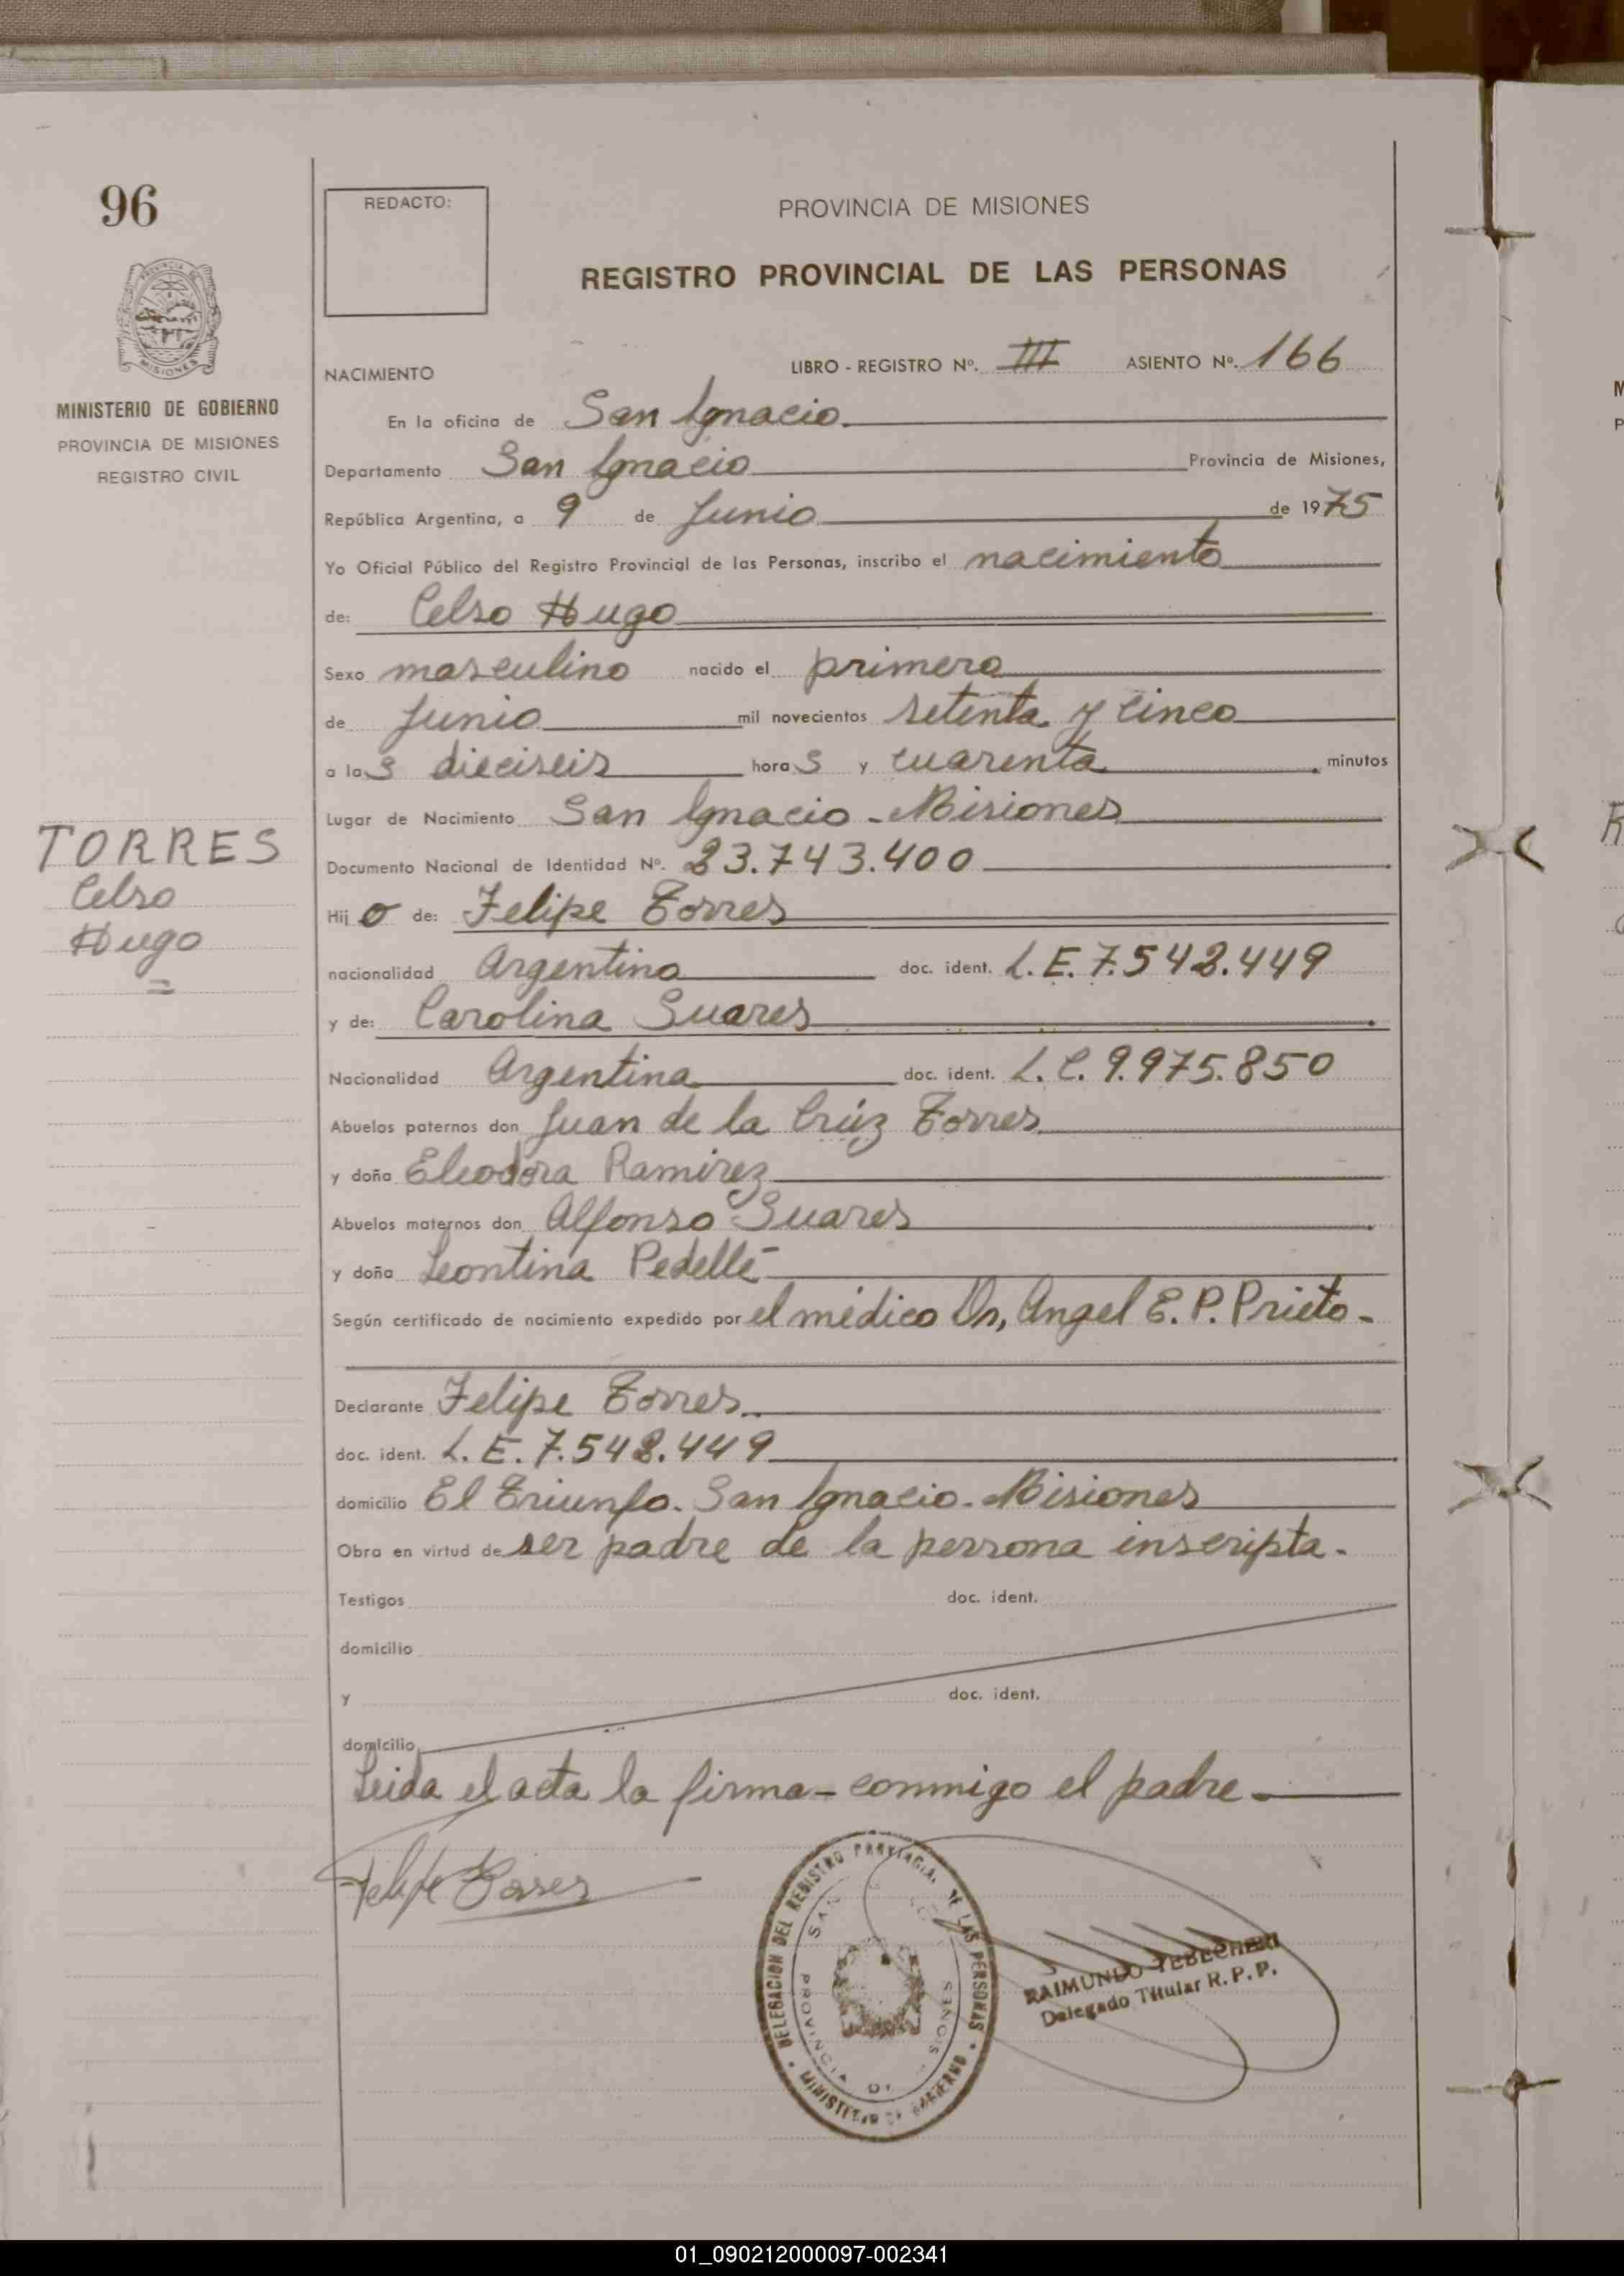 96
REDACTO:
PROVINCIA DE MISIONES
REGISTRO PROVINCIAL DE LAS PERSONAS
MISIONES
MINISTERIO DE GOBIERNO
PROVINCIA DE MISIONES
REGISTRO CIVIL
NACIMIENTO LIBRO - REGISTRO Nº. III ASIENTO Nº. 166
En la oficina de San Ignacio.
Departamento San Ignacio Provincia de Misiones,
República Argentina, a 9 de Junio de 1975
Yo Oficial Público del Registro Provincial de las Personas, inscribo el nacimiento
de: Celso Hugo
Sexo masculino nacido el primero
de Junio mil novecientos setenta y cinco
a las dieciseis horas y cuarenta minutos
Lugar de Nacimiento San Ignacio - Misiones
Documento Nacional de Identidad Nº. 23.743.400
TORRES
Celso
Hugo
=
Hijo de: Felipe Torres
nacionalidad Argentino doc. ident. L.E. 7.542.449
y de: Carolina Suares
Nacionalidad Argentina doc. ident. L.C. 9.975.850
Abuelos paternos don Juan de la Crúz Torres
y doña Eleodora Ramirez
Abuelos maternos don Alfonso Suares
y doña Leontina Pedellé
Según certificado de nacimiento expedido por el médico Dr, Angel E. P. Prieto -
Declarante Felipe Torres
doc. ident. L. E. 7.542.449
domicilio El Triunfo. San Ignacio - Misiones
Obra en virtud de ser padre de la persona inscripta.
Testigos doc. ident.
domicilio
y doc. ident.
domicilio
Leida el acta la firma - conmigo el padre
Felipe Torres
DELEGACION DEL REGISTRO PROVINCIAL DE LAS PERSONAS
MINISTERIO DE GOBIERNO
SAN
PROVINCIA DE MISIONES
RAIMUNDO TEBECHERI
Delegado Titular R.P.P.
01_090212000097-002341